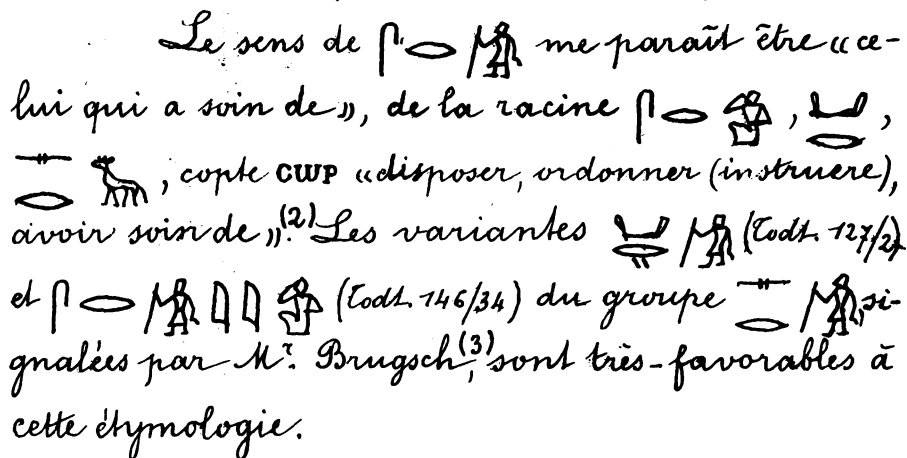 Le sens de 𓋴𓂋𓀙 me paraît être « ce-
lui qui a soin de », de la racine 𓋴𓂋𓀁, 
copte ⲥⲱⲣ « disposer, ordonner (instruere),
avoir soin de ».(2) Les variantes (Todt. 127/27)
et 𓋴𓂋𓀙𓇋𓇋𓀁 (Todt. 146/34) du groupe si-
gnalées par Mr. Brugsch(3), sont très-favorables à
cette étymologie.